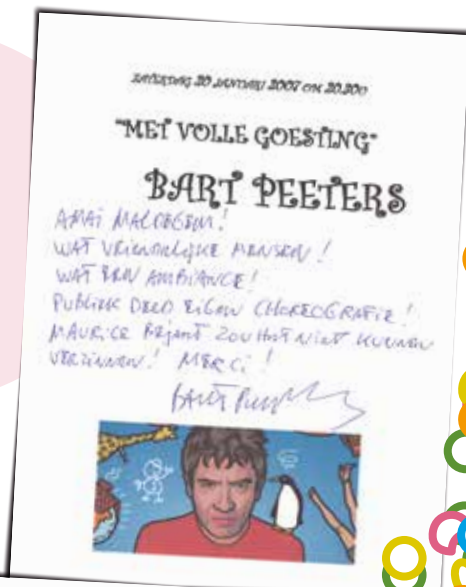 ZATERDAG 20 JANUARI 2007 OM 20.20U
"MET VOLLE GOESTING"
BART PEETERS
AMAI MALDEGEM!
WAT VRIENDELIJKE MENSEN!
WAT EEN AMBIANCE!
PUBLIEK DEED EIGEN CHOREOGRAFIE!
MAURICE BEJART ZOU HET NIET KUNNEN
VERZINNEN! MERCI!